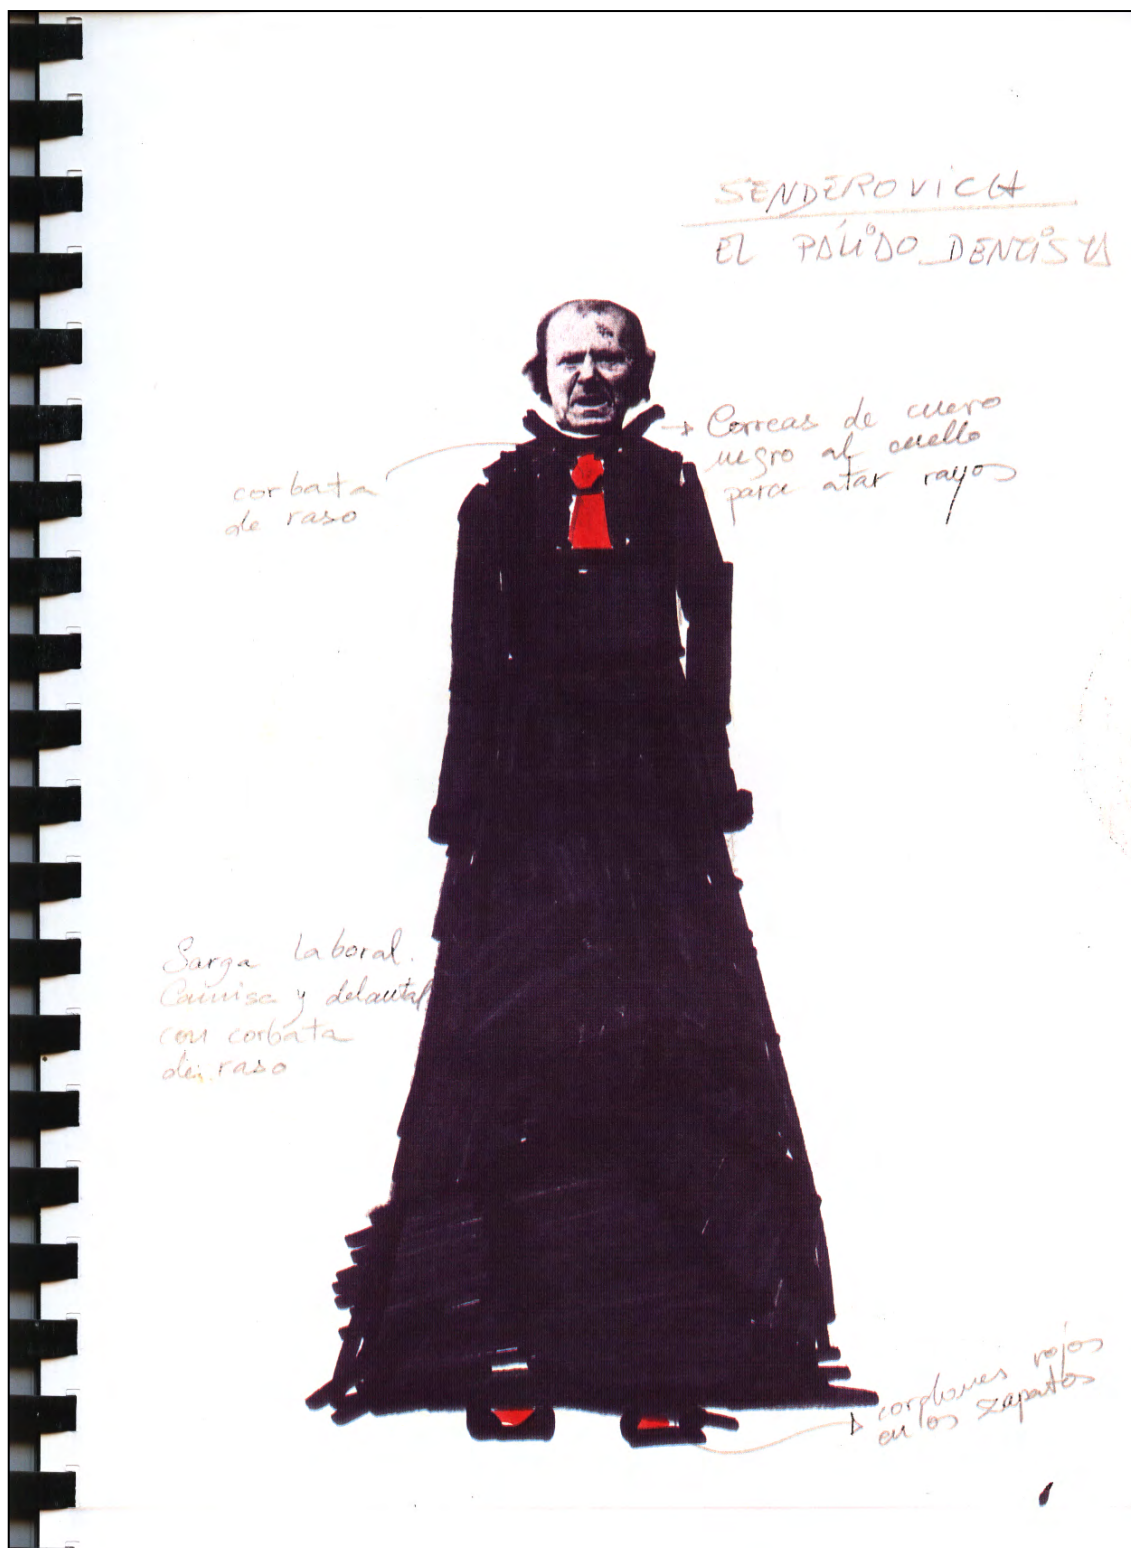 SENDEROVICH
EL PÁLIDO DENTISTA
Correas de cuero
negro al cuello
para atar rayos
corbata
de raso
Sarga laboral.
Camisa y delantal
con corbata
de raso
cordones rojos
en los zapatos